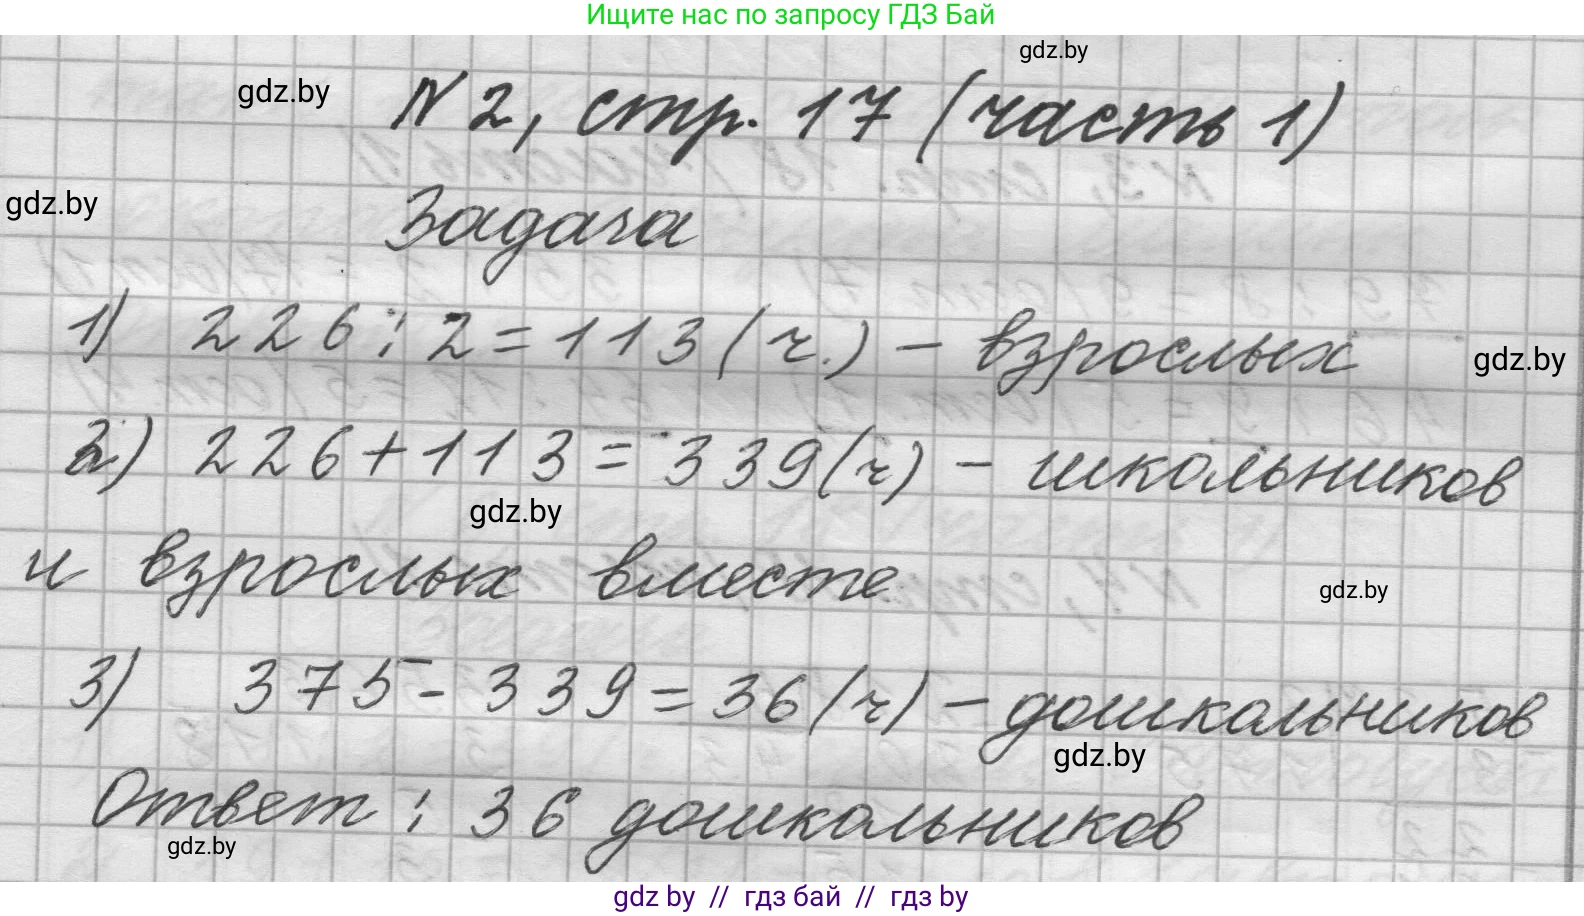 Ищите нас по запросу ГДЗ Бай
gdz.by
gdz.by
N 2, стр. 17 (часть 1)
gdz.by
Задача
1) 226 : 2 = 113 (ч.) - взрослых
gdz.by
2) 226 + 113 = 339 (ч) - школьников
gdz.by
и взрослых вместе
gdz.by
3) 375 - 339 = 36 (ч) - дошкальников
gdz.by
Ответ : 36 дошкальников
gdz.by
gdz by // гдз бай // гдз by